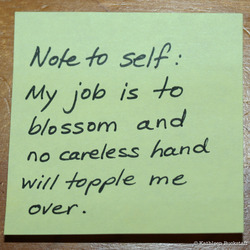 Note to self:
My job is to
blossom and
no careless hand
will topple me
over.